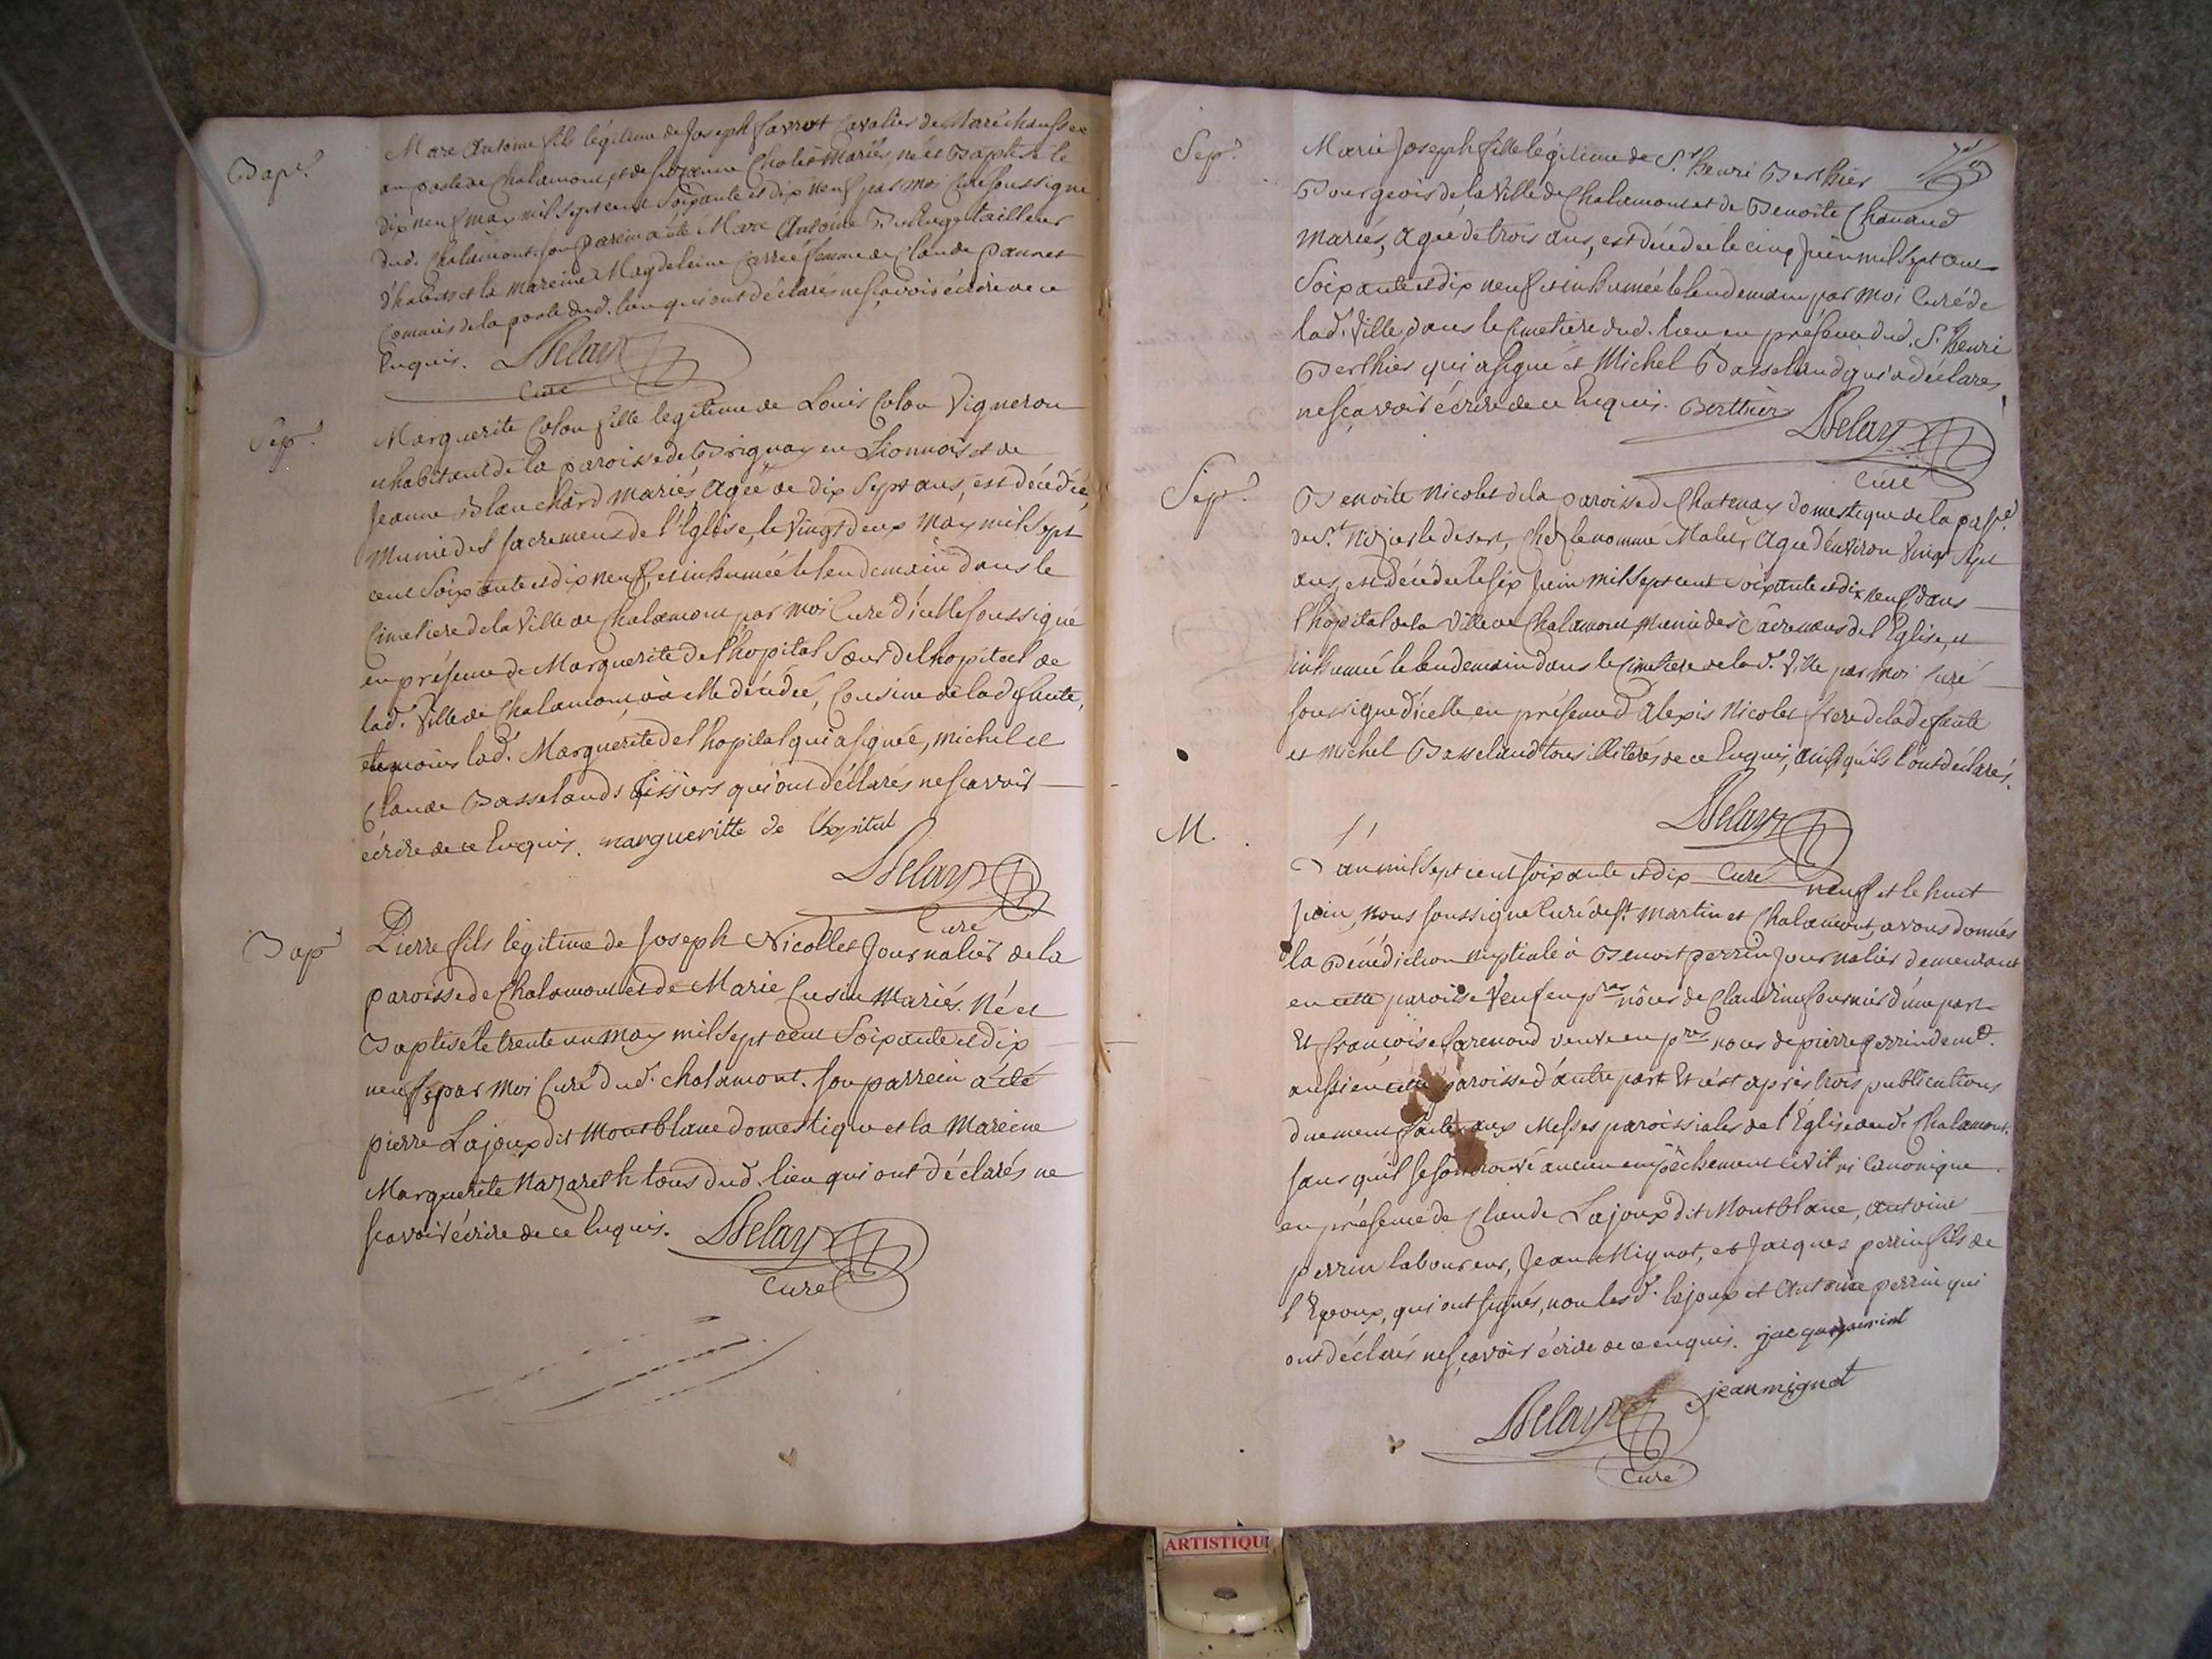 Bap.t
Marc Antoine fils légitime de Joseph favrot Cavalier de Maréchaussée
au poste de Chalamont, et de Suzanne Cholet Mariés, né et Baptisé le
dix neuf may mil sept cent Soixante et dix neuf par moi Curé soussigné
dud. Chalamont. son parein a été Marc Antoine tailleur
d'habits et la mareine Magdeleine Carrée femme de Claude pannet
Commis de la poste dud. lieu qui ont déclarés ne sçavoir écrire de ce
Enquis. Delay
Curé
Sep.t
Marguerite Colon fille legitime de Louis Colon Vigneron
et habitant de la paroisse de Brignay en Lionnois et de
Jeanne Blanchard mariés, agée de dix Sept ans, est décédée,
munie des sacremens de l'Eglise, le Vingt deux May mil Sept
cent Soixante et dix neuf et inhumée le lendemain dans le
Cimetiere de la Ville de Chalamont par moi Curé d'icelle soussigné
en présence de Marguerite de l'hopital Sœur de l'hopital de
lad.e Ville de Chalamont où elle décédée, Cousine de la defunte,
témoins lad.e Marguerite de l'hopital qui a signée, michel et
Claude Basseland tissiers qui ont déclarés ne scavoir
écrire de ce Enquis. margueritte de lhopital
Delay
Curé
Bap.t
Pierre fils légitime de Joseph Nicollet Journalier de la
paroisse de Chalamont et de Marie Cusin Mariés. Né et
Baptisé le trente un may mil sept cent Soixante et dix
neuf, par moi Curé dud. chalamont. son parrein a été
pierre Lajoux dit Montblanc domestique et la Mareine
Marguerite Nazareth tous dud. lieu qui ont déclarés ne
scavoir écrire de ce Enquis. Delay
Curé
Sep.t
Marie Joseph fille légitime de S.r henri Berthier
Bourgeois de la Ville de Chalamont et de Benoite Chanaud
Mariés, agée de trois ans, est décédée le cinq Juin mil sept cent
Soixante et dix neuf et inhumée le lendemain par moi Curé de
lad.e Ville, dans le Cimetiere dud. lieu en présence dud. S.r henri
Berthier qui a signé et Michel Basseland qui a déclaré
ne sçavoir écrire de ce Enquis. Berthier Delay
Curé
Sep.t
Benoite Nicolet de la paroisse de Chatenay domestique de la pa.sse
de S.t Nizier le desert, chez le nommé Malet, agée d'environ Vingt Sept
ans, est décédée le six Juin mil sept cent soixante et dix neuf dans
l'hôpital de la Ville de Chalamont, munie des Sacremens de l'Eglise, et
inhumée le lendemain dans le Cimetiere de lad.e Ville par moi Curé
soussigné d'icelle en présence d'Alexis Nicolet frere de la defunte
et Michel Basseland tous illiterés de ce Enquis, ainsi qu'ils l'ont déclarés.
Delay
Curé
M.
L'an mil sept cent soixante et dix neuf et le huit
Juin, nous soussigné Curé de S.t Martin et Chalamont, avons donnés
la Bénédiction nuptiale à Benoit perrin Journalier demeurant
en cette paroisse Veuf en p.res nôces de Claudine fournier d'une part
Et françoise farenoud veuve en p.res noces de pierre perrin dem.t
aussi en cette paroisse d'autre part Et c'est après trois publications
duement faites aux Messes paroissiales de l'Église dud. Chalamont.
sans qu'il se soit trouvé aucun empêchement civil ni Canonique
en présence de Claude Lajoux dit Montblanc, antoine
perrin laboureur, Jean Mignot, et Jacques perrin fils de
l'Epoux, qui ont signés, non lesd. lajoux et Antoine perrin qui
ont déclarés ne sçavoir écrire de ce enquis. jacque
jean mignot
Delay
Curé
ARTISTIQU